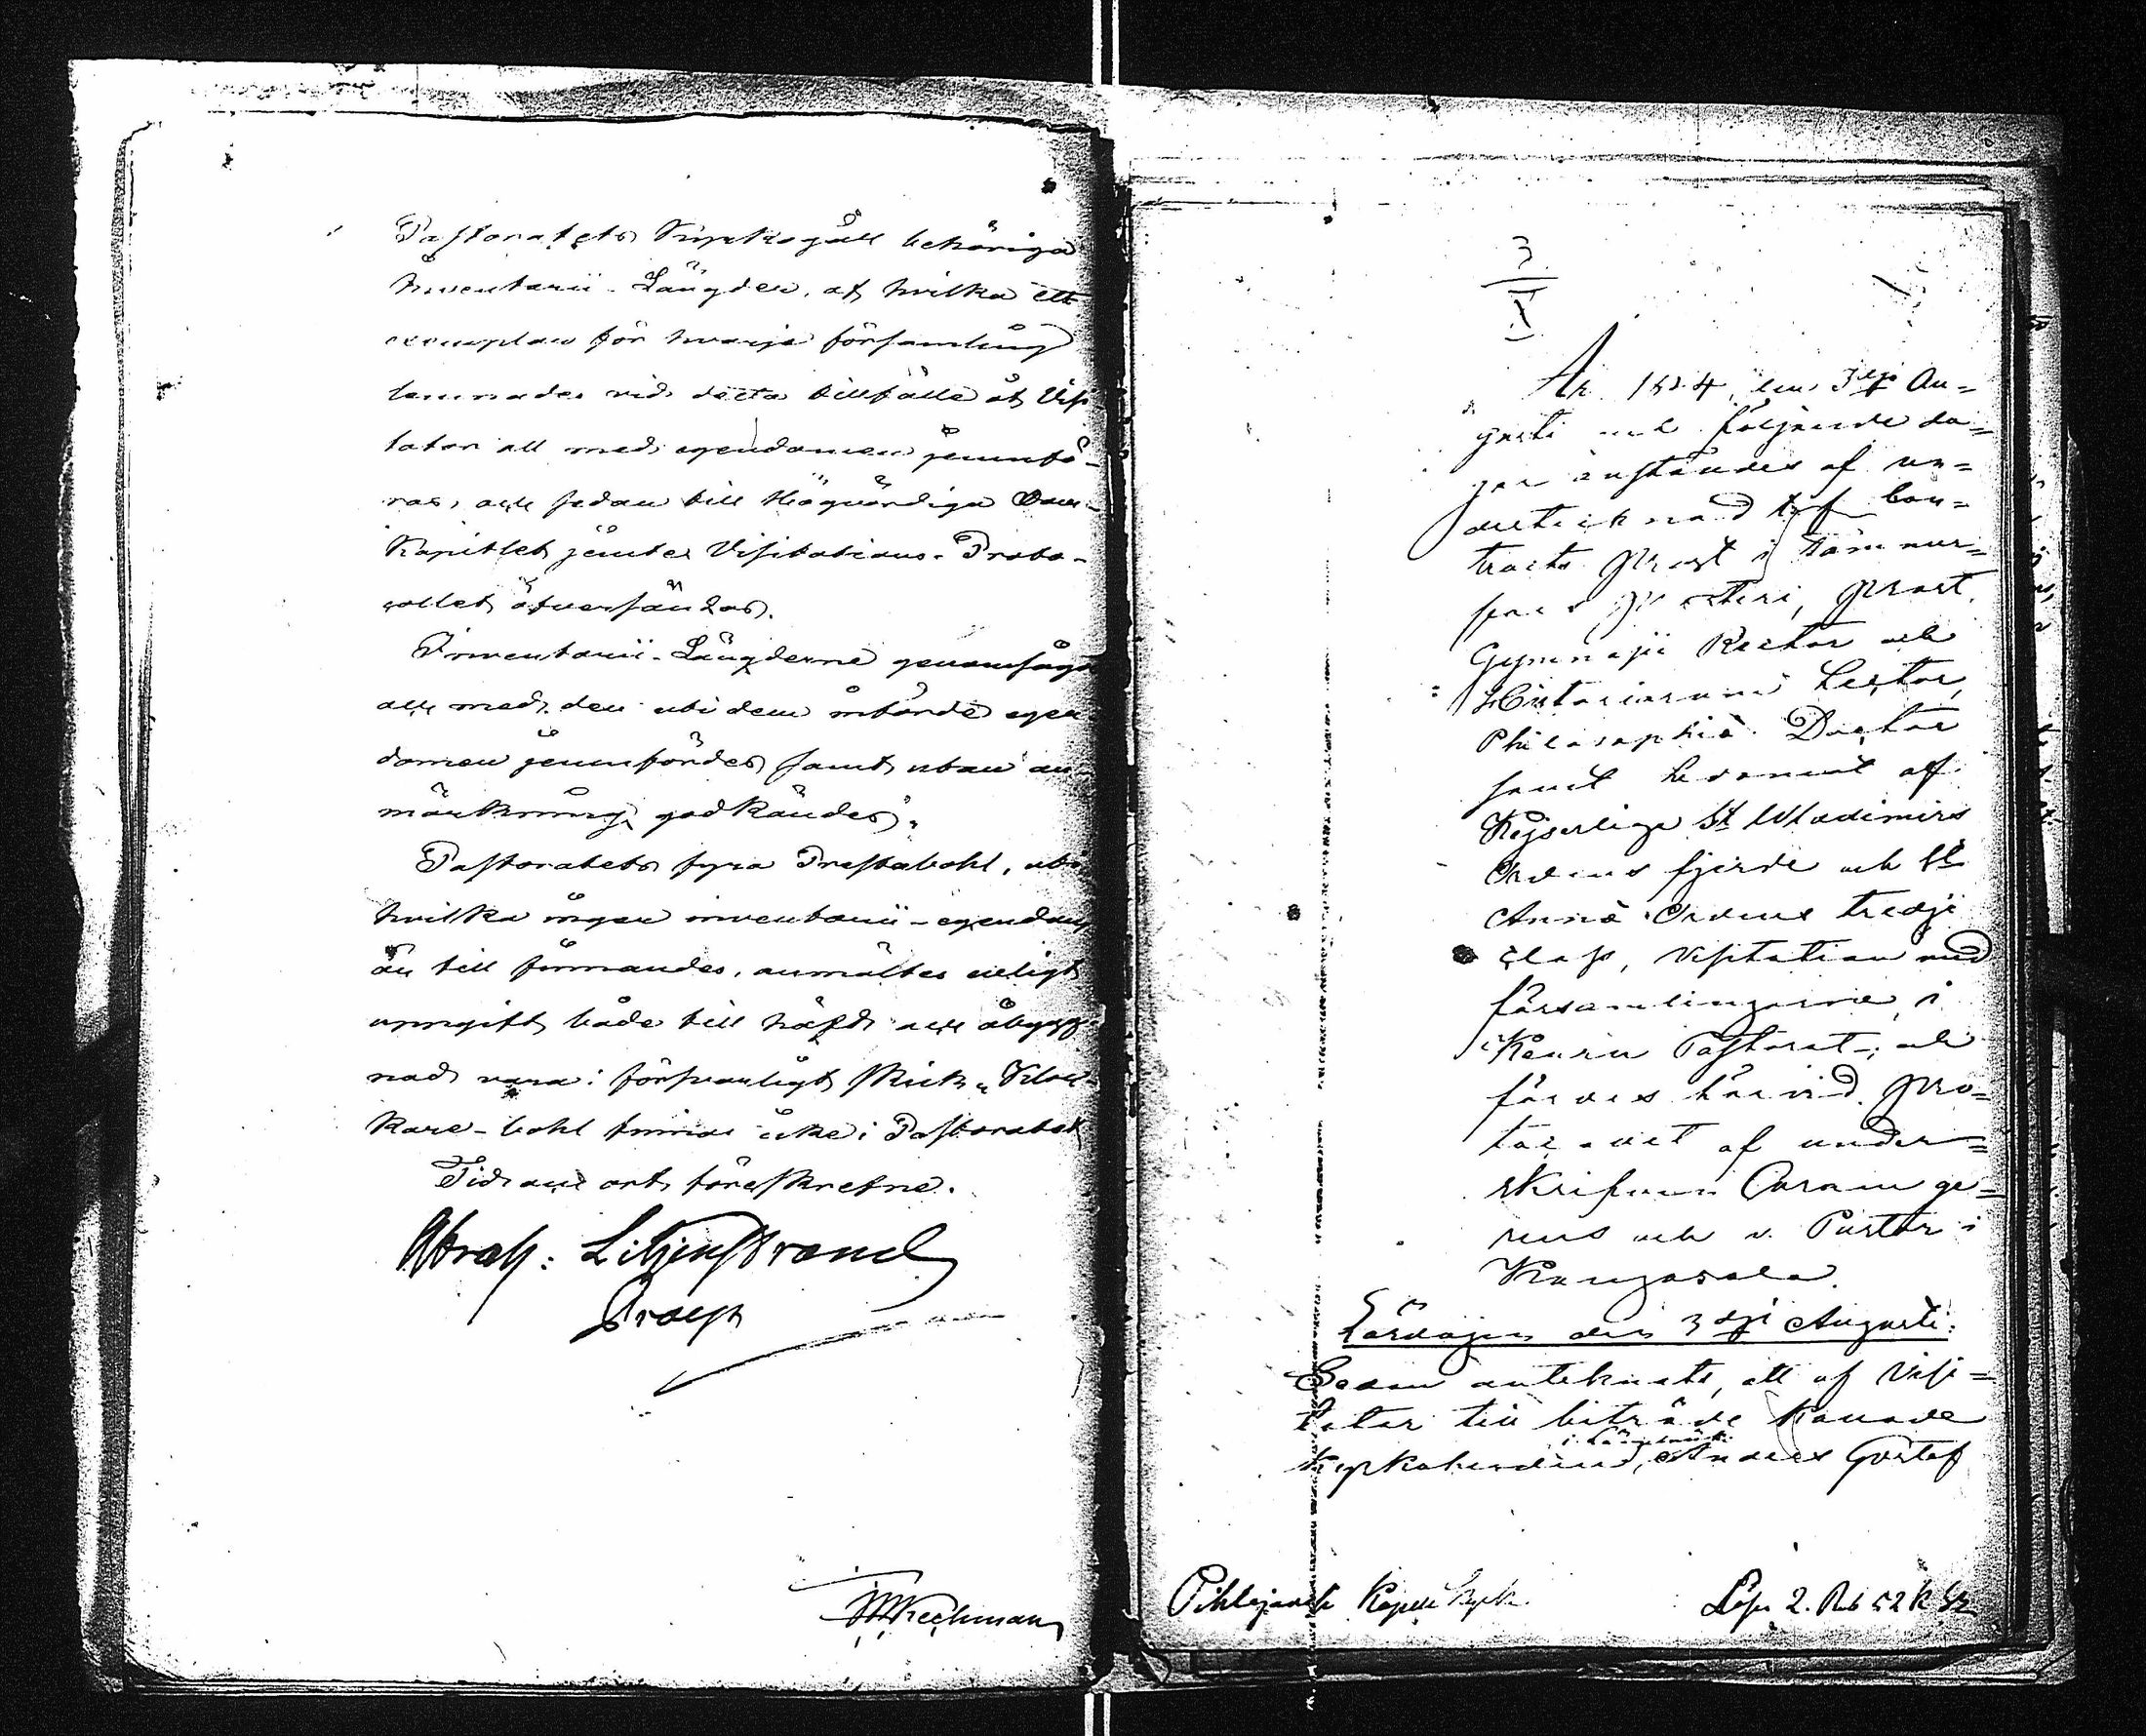 Pastoratets Kyrkogåll behöriga
Inventarii-Längder, af hvilka ett
exemplar för hvarje församling
lemnades vid detta tillfälle åt Visi
tator att med egendomen jemnfö-
ras, och sedan till Högvördiga Dom-
Kapitlet jemte Visitations-Proto-
collet öfversändas.
Inventarii-Längderne genomsågs
och med den uti dem införde egen
domen jemnfördes samt utan an-
märkning godkändes.
Pastoratets fyra Prestabohl, uti
hvilka ingen inventarii-egendom
än till finnandes, anmältes enligt
uppgift både till häfd och åbygg
nad vara i försvarligt skick. Kloc
kare-bohl finnes icke i Pastoratet
Tid och ort föreskrefne.
Abrah: Liljenstrand
Praeses
3
År 1824, den 3dje Au=
gusti och följande da=
gar anstäldes af un=
dertecknad t.f. Con=
tracts Prost i Tammer=
fors Prosteri, Prost,
Gymnasii Rector och
Historiarum Lector,
Philosophiæ Doctor
samt Ledamot af
Kejserliga St Wladimirs
Ordens fjerde och St
Annæ Ordens tredje
Class, Visitation med
församlingarne i
Keuru Pastorat; och
fördes härvid Pro=
tocollet af under=
skrifven Coram ge=
rens och v. Pastor i
Kangasala.
Lördagen den 3dje Augusti.
Sedan antecknats, att af Visi=
tator till biträde kallade
Kyrkoherden, Anders Gustaf
Pihlajavesi Kapell Kyrk.